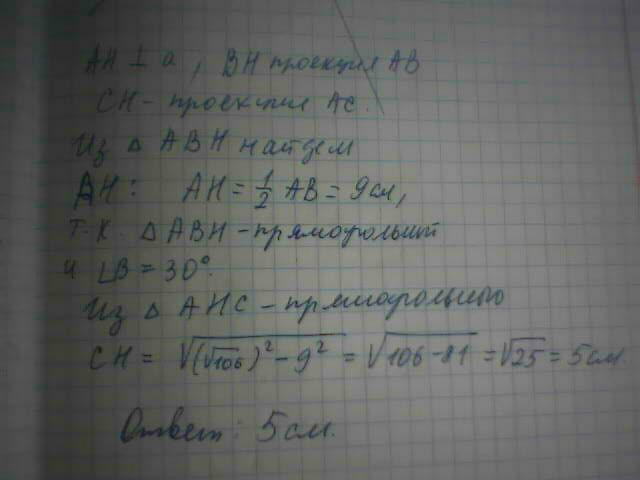 AH ⊥ α, BH проекция AB
CH - проекция AC.
Из △ ABH найдем
AH: AH = 1/2 AB = 9см,
т.к. △ ABH - прямоугольный
и ∠B = 30°.
Из △ AHC - прямоугольного
CH = √((√106)² - 9²) = √(106-81) = √25 = 5см.
Ответ: 5см.